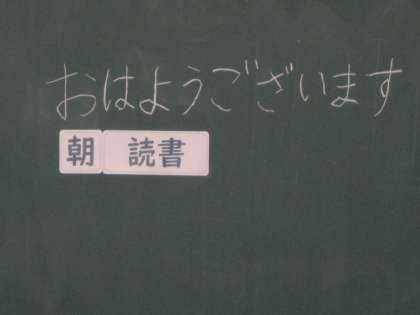 おはようございます
朝 読書